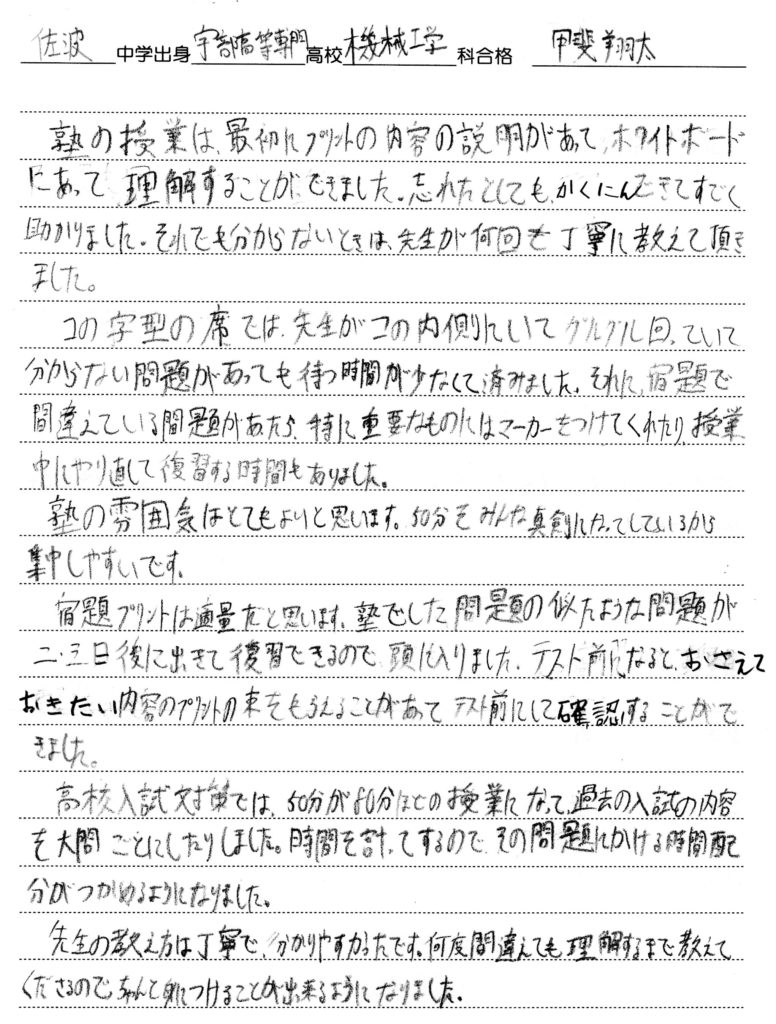 佐波 中学出身 宇部高等専門 高校 機械工学 科合格 甲斐翔太
塾の授業は、最初にプリントの内容の説明があって、ホワイトボード
にあって理解することができました。忘れたとしても、かくにんできてすごく
助かりました。それでも分からないときは、先生が何回も丁寧に教えて頂き
ました。
コの字型の席では、先生がコの内側にいてグルグル回っていて
分からない問題があっても待つ時間が少なくて済みました。それに、宿題で
間違えている問題があったら、特に重要なものにはマーカーをつけてくれたり、授業
中にやり直して復習する時間もありました。
塾の雰囲気はとてもよいと思います。50分をみんな真剣になってしているから
集中しやすいです。
宿題プリントは適量だと思います。塾でした問題の似たような問題が
二・三日後に出きて復習できるので、頭に入りました。テスト前になると、おさえて
おきたい内容のプリントの束をもらえることがあってテスト前にして確認することがで
きました。
高校入試対策では、50分が80分ほどの授業になって、過去の入試の内容
を大問ごとにしたりしました。時間を計ってするので、その問題にかける時間配
分がつかめるようになりました。
先生の教え方は丁寧で、分かりやすかったです。何度間違えても理解するまで教えて
くださるので、ちゃんと身につけることが出来るようになりました。